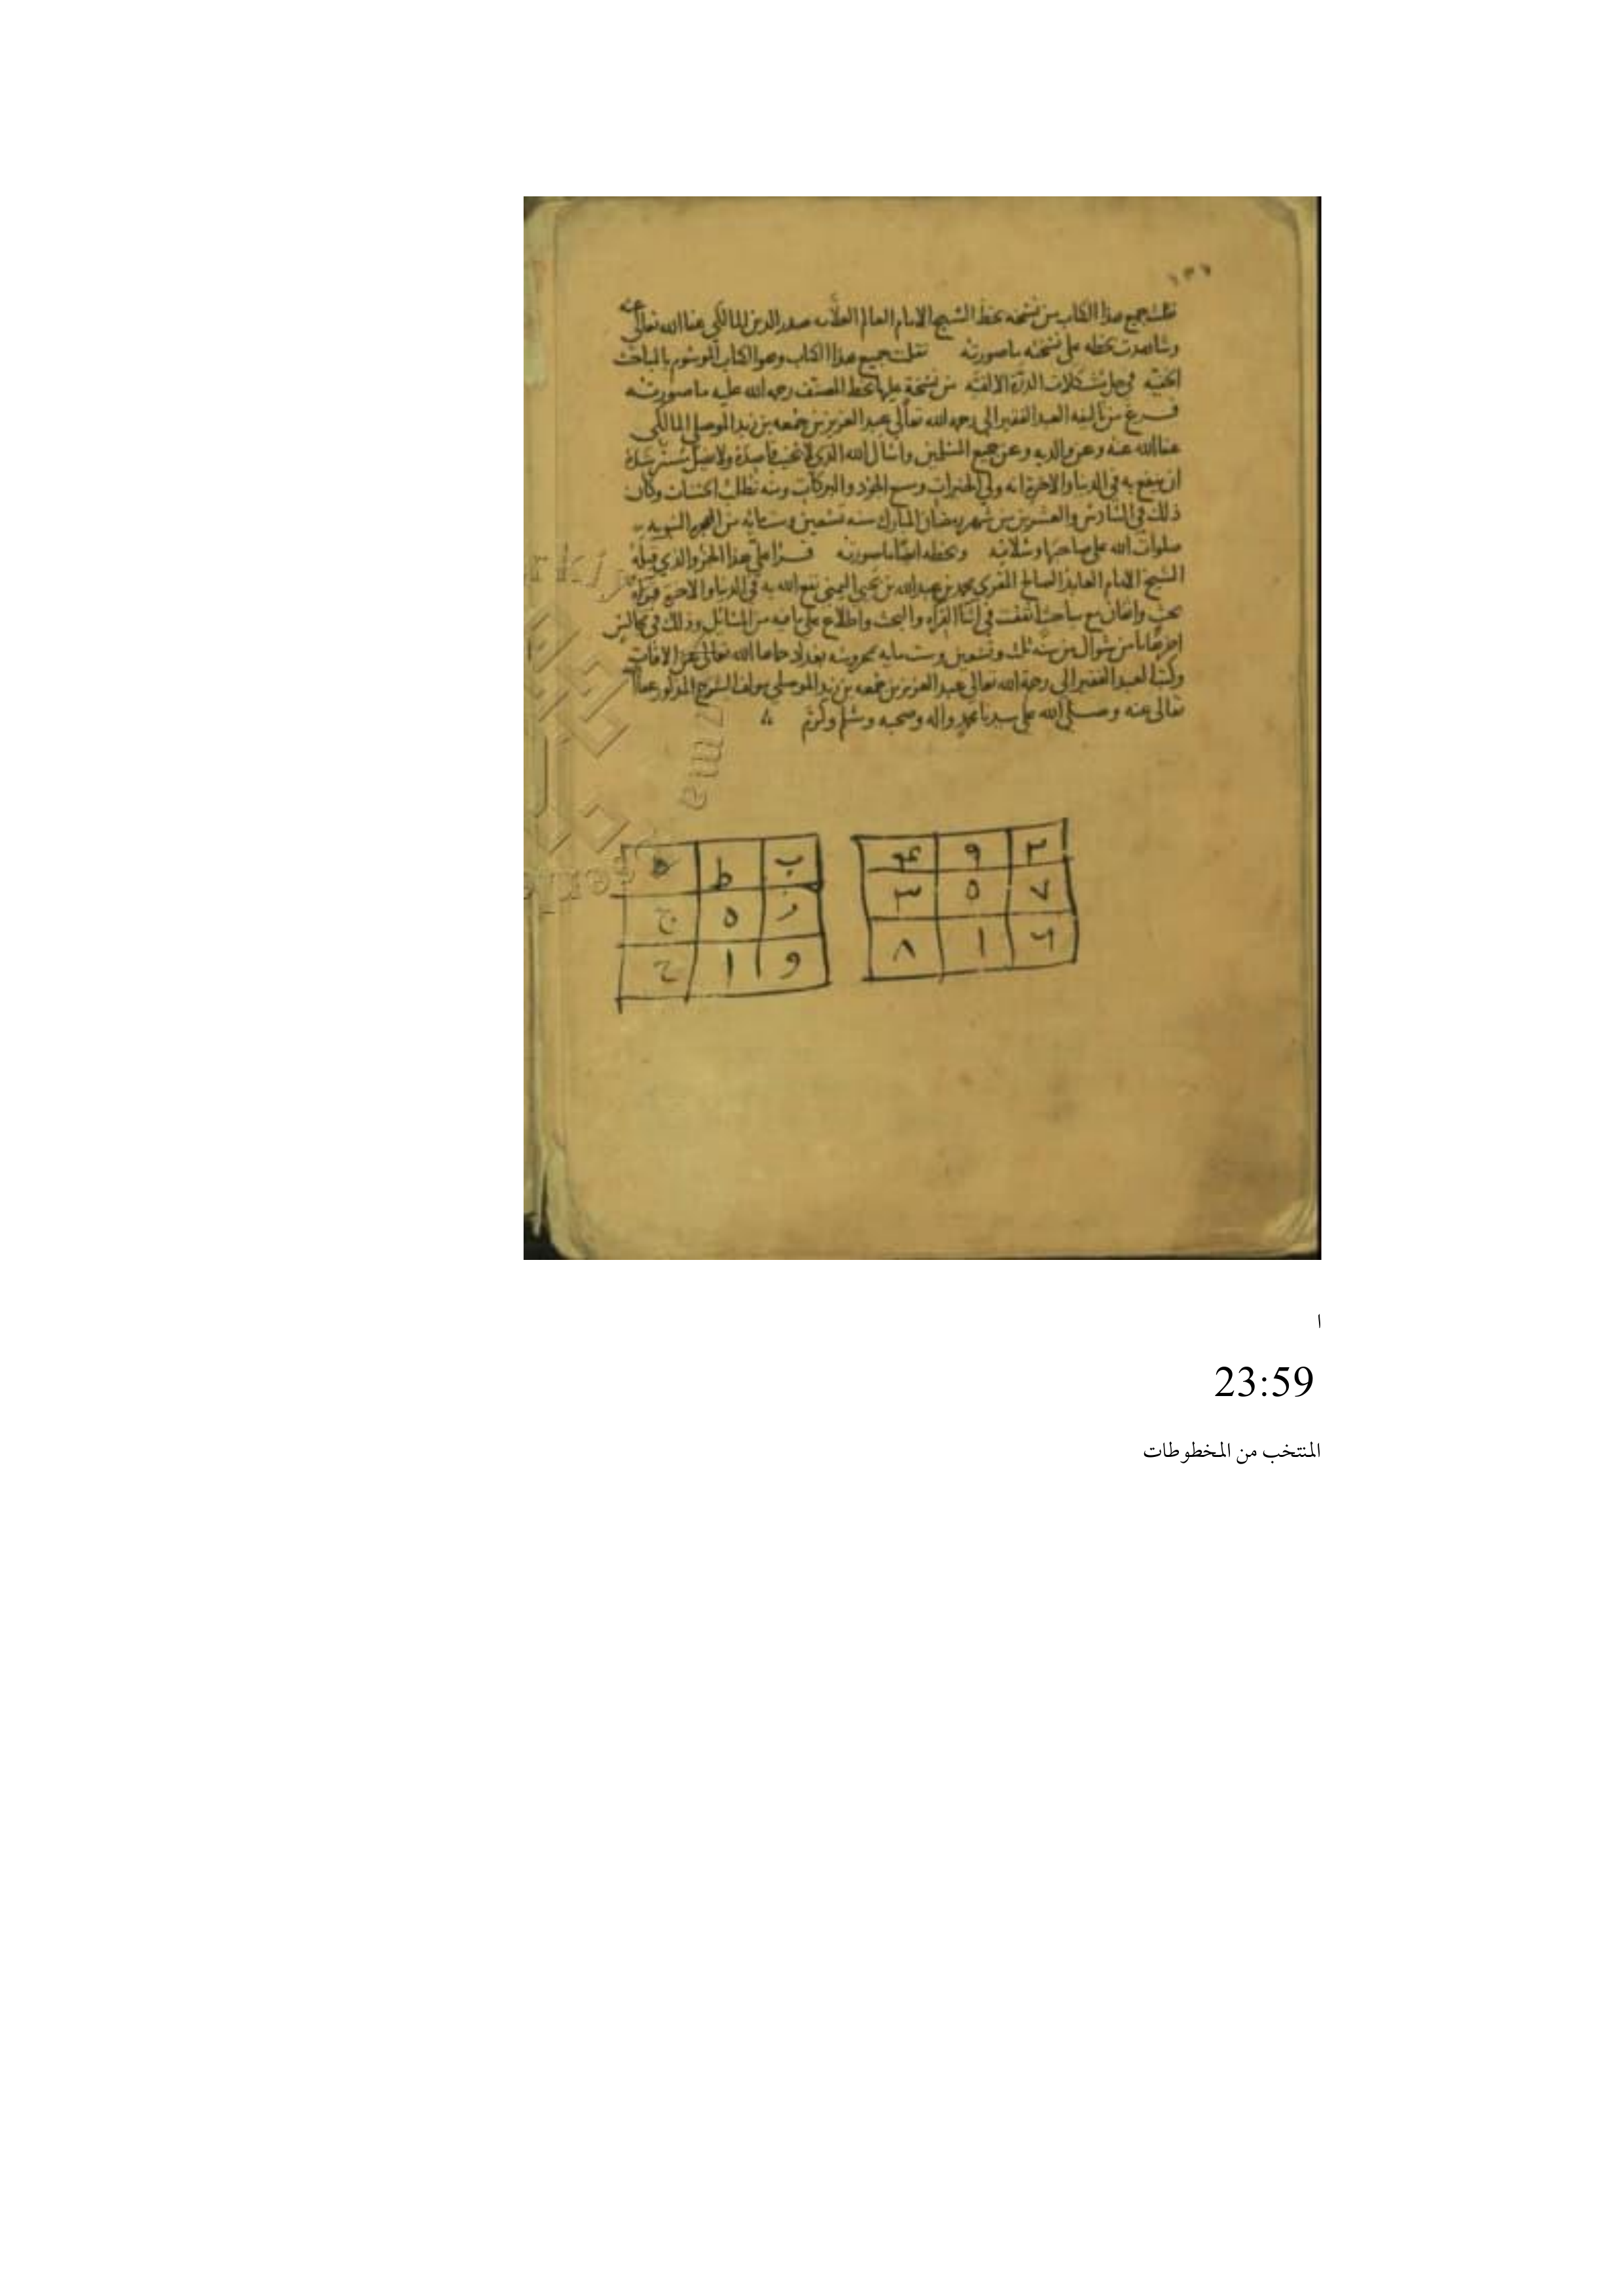 ١٣١
نقلت جميع هذا الكتاب من نسخه بخط الشيخ الامام العالم العلامه صدر الدين المالكي عفا الله تعالى عنه
وشاهدت بخطه على نسخته ما صورته نقلت جميع هذا الكتاب وهو الكتاب الموسوم بالمباحث
الخفيه في حل مشكلات الدرة الالفيه من نسخة عليها بخط المصنف رحمه الله عليه ما صورته
فرغ من تاليفه العبد الفقير الى رحمه الله تعالى عبد العزيز بن جمعه بن زيد الموصلي المالكي
عفا الله عنه وعن والديه وعن جميع المسلمين واسال الله الذي لا يخيب قاصده ولا يضل مسترشده
ان ينفع به في الدنيا والاخرة انه ولي الخيرات وسع الجود والبركات ومنه نطلب الحسنات وكان
ذلك في السادس والعشرين من شهر رمضان المبارك سنه تسعين وستمايه من الهجره النبويه
صلوات الله على صاحبها وسلامه وبخطه ايضا ما صورته قرا علي هذا الجزو والذي قبله
الشيخ الامام العابد الصالح المقري محمد بن عبد الله بن يحيى اليمني نفع الله به في الدنيا والاخره قراة
بحث واتقان مع مباحث اتفقت في اثنا القراه والبحث واطلاع على ما فيه من المسائل وذلك في مجالس
اخرها من شوال من سنه ثلث وتسعين وستمايه بمحروسه بغداد حاها الله تعالى من الافات
وكتب العبد الفقير الى رحمة الله تعالى عبد العزيز بن جمعه بن زيد الموصلي مولف الشرح المذكور عفا الله
تعالى عنه وصلى الله على سيدنا محمد واله وصحبه وسلم وكرم
٢ ٩ ٤
٧ ٥ ٣
٦ ١ ٨
ب ط
ز ٥ ج
و ا ح
ا
23:59
المنتخب من المخطوطات